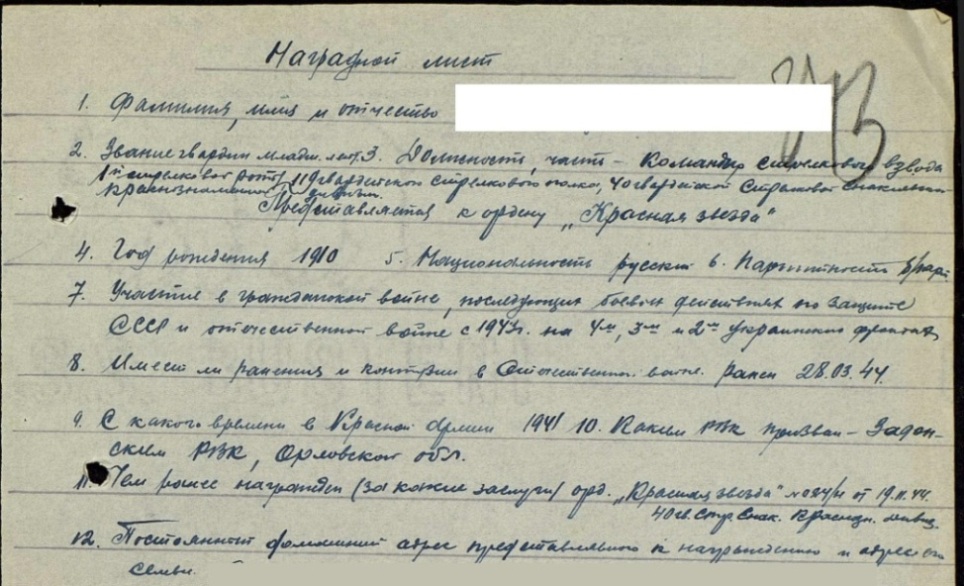 Наградной лист
1. Фамилия, имя и отчество
2. Звание гвардии младш. лейт. 3. Должность, часть - Командир стрелкового взвода
1й стрелковой роты, 119 гвардейского стрелкового полка, 40 гвардейской Стрелковой Енакиевской
Краснознаменной дивизии.
Представляется к ордену „Красная звезда"
4. Год рождения 1910 5. Национальность русский 6. Партийность б/парт.
7. Участие в гражданской войне, последующих боевых действиях по защите
СССР и отечественной войне с 1943г. на 4м, 3м и 2м Украинских фронтах
8. Имеет ли ранения и контузии в Отечественной войне. ранен 28.03.44.
9. С какого времени в Красной армии 1941 10. Каким РВК призван - Задон-
ским РВК, Орловской обл.
11. Чем ранее награжден (за какие заслуги) орд. „Красная звезда" от 19.11.44.
40 гв. Стр. Енак. Краснозн. дивиз.
12. Постоянный домашний адрес представляемого к награждению и адрес его
семьи.